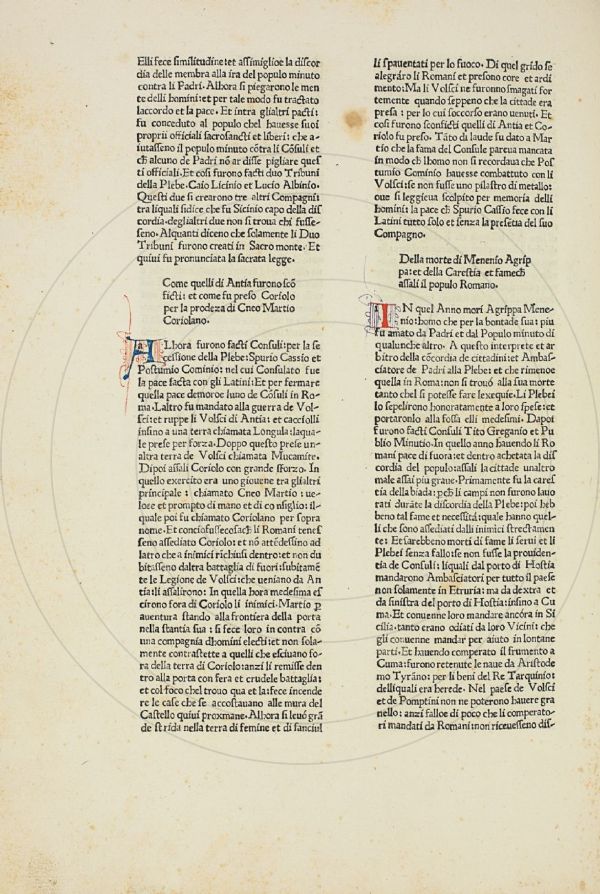 Elli fece similitudine: et assimiglioe la discor
dia delle membra alla ira del populo minuto
contra li Padri. Alhora si piegarono le men
te delli homini: et per tale modo fu tractato
laccordo et la pace. Et intra glialtri pacti:
fu conceduto al populo chel hauesse suoi
proprii officiali sacrosancti et liberi: che a-
iutasseno il populo minuto cōtra li Cōsuli et
ch̄ alcuno de Padri nō ardisse pigliare ques
ti officiali. Et cosi furono facti duo Tribuni
della Plebe. Caio Licinio et Lucio Albinio.
Questi due si crearono tre altri Compagni:
tra liquali sidice che fu Sicinio capo della dis
cordia. deglialtri due non si troua chi fusse-
seno. Alquanti diceno che solamente li Duo
Tribuni furono creati in Sacro monte. Et
quiui fu pronunciata la sacrata legge.
Come quelli di Antia furono scō
ficti: et come fu preso Coriolo
per la prodeza di Cneo Martio
Coriolano.
ALhora furono facti Consuli: per la se
cessione della Plebe: Spurio Cassio et
Postumio Cominio: nel cui Consulato fue
la pace facta con gli Latini: Et per fermare
quella pace demoroe luno de Cōsuli in Ro-
ma. Laltro fu mandato alla guerra de Vol-
sci: et ruppe li Volsci di Antia: et cacciolli
insino a una terra chiamata Longula: laqua-
le prese per forza. Doppo questo prese un-
altra terra de Volsci chiamata Mucamite.
Dipoi assali Coriolo con grande sforzo. In
quello exercito era uno giouene tra glialtri
principale: chiamato Cneo Martio: ue-
loce et prompto di mano et di consiglio: il-
quale poi fu chiamato Coriolano per sopra
nome. Et conciofussecosach̄ li Romani tenes
seno assediato Coriolo: et nō attēdessino ad
latro che a inimici richiusi dentro: et non du
bitasseno daltra battaglia di fuori: subitamē
te le Legione de Volsci: che ueniano da An
tia: li assalirono. In quella hora medesima es
cirono fora di Coriolo li inimici. Martio p̄
auentura stando alla frontiera della porta
nella stantia sua: si fece loro in contra cō
una compagnia dhomini electi: et non sola-
mente contrastette a quelli che esciuano fo-
ra della terra di Coriolo: anzi li remisse den
tro alla porta con fera et crudele battaglia:
et col foco chel trouo qua et la: fece incende
re le case che se accostauano alle mura del
Castello quiui proxmane. Alhora si leuó grā
de strida nella terra di femine et di fanciul
li spauentati per lo fuoco. Di quel grido se
alegráro li Romani et presono core et ardi
mento: Ma li Volsci ne furonno smagati for
temente quando seppeno che la cittade era
presa: per lo cui soccorso erano uenuti. Et
cosi furono sconficti quelli di Antia et Co-
riolo fu preso. Tāto di laude fu dato a Mar
tio che la fama del Consule pareua mancata
in modo ch̄ lhomo non si recordaua che Pos
tumio Cominio hauesse combattuto con li
Volsci: se non fusse uno pilastro di metallo:
oue si leggieua scolpito per memoria delli
homini: la pace ch̄ Spurio Cassio fece con li
Latini tutto solo et senza la presētia del suo
Compagno.
Della morte di Menenio Agrip
pa: et della Carestia et famech̄
assali il populo Romano.
IN quel Anno mori Agrippa Mene-
nio: homo che per la bontade sua: piu
fu amato da Padri et dal Populo minuto di
qualunche altro. A questo interprete et ar
bitro della cōcordia de cittadini: et Ambas-
ciatore de Padri alla Plebe: et che rimenoe
quella in Roma: non si trouò alla sua morte
tanto chel si potesse fare lexequie. Li Plebei
lo sepelirono honoratamente a loro spese: et
portaronlo alla fossa elli medesimi. Dapoi
furono facti Consuli Tito Greganio et Pu-
blio Minutio. In quello anno hauendo li Ro
mani pace di fuora: et dentro achetata la dis
cordia del populo: assali la cittade unaltro
male assai piu graue. Primamente fu la cares
tia della biada: pch̄ li campi non furono lauo
rati durāte la discordia della Plebe: poi heb
beno tal fame et necessitá: quale hanno quel-
li che sono assediati dalli inimici strectamen-
te: Et sarebbeno morti di fame li serui et li
Plebei senza fallo: se non fusse la prouiden-
tia de Consuli: liquali dal porto di Hostia
mandarono Ambasciatori per tutto il paese
non solamente in Etruria: ma da dextra et
da sinistra del porto di Hostia: insino a Cu
ma. Et conuenne loro mandare ancóra in Si
cilia. tanto erano odiati da loro Vicini: che
gli conuenne mandar per aiuto in lontane
parti. Et hauendo comperato il frumento a
Cuma: furono retenute le naue da Aristode
mo Tyrāno: per li beni del Re Tarquinio:
delliquali era herede. Nel paese de Volsci
et de Pomptini non ne poterono hauere gra
nello: anzi falloe di poco che li comperato-
ri mandati da Romani: non riceuesseno dis-